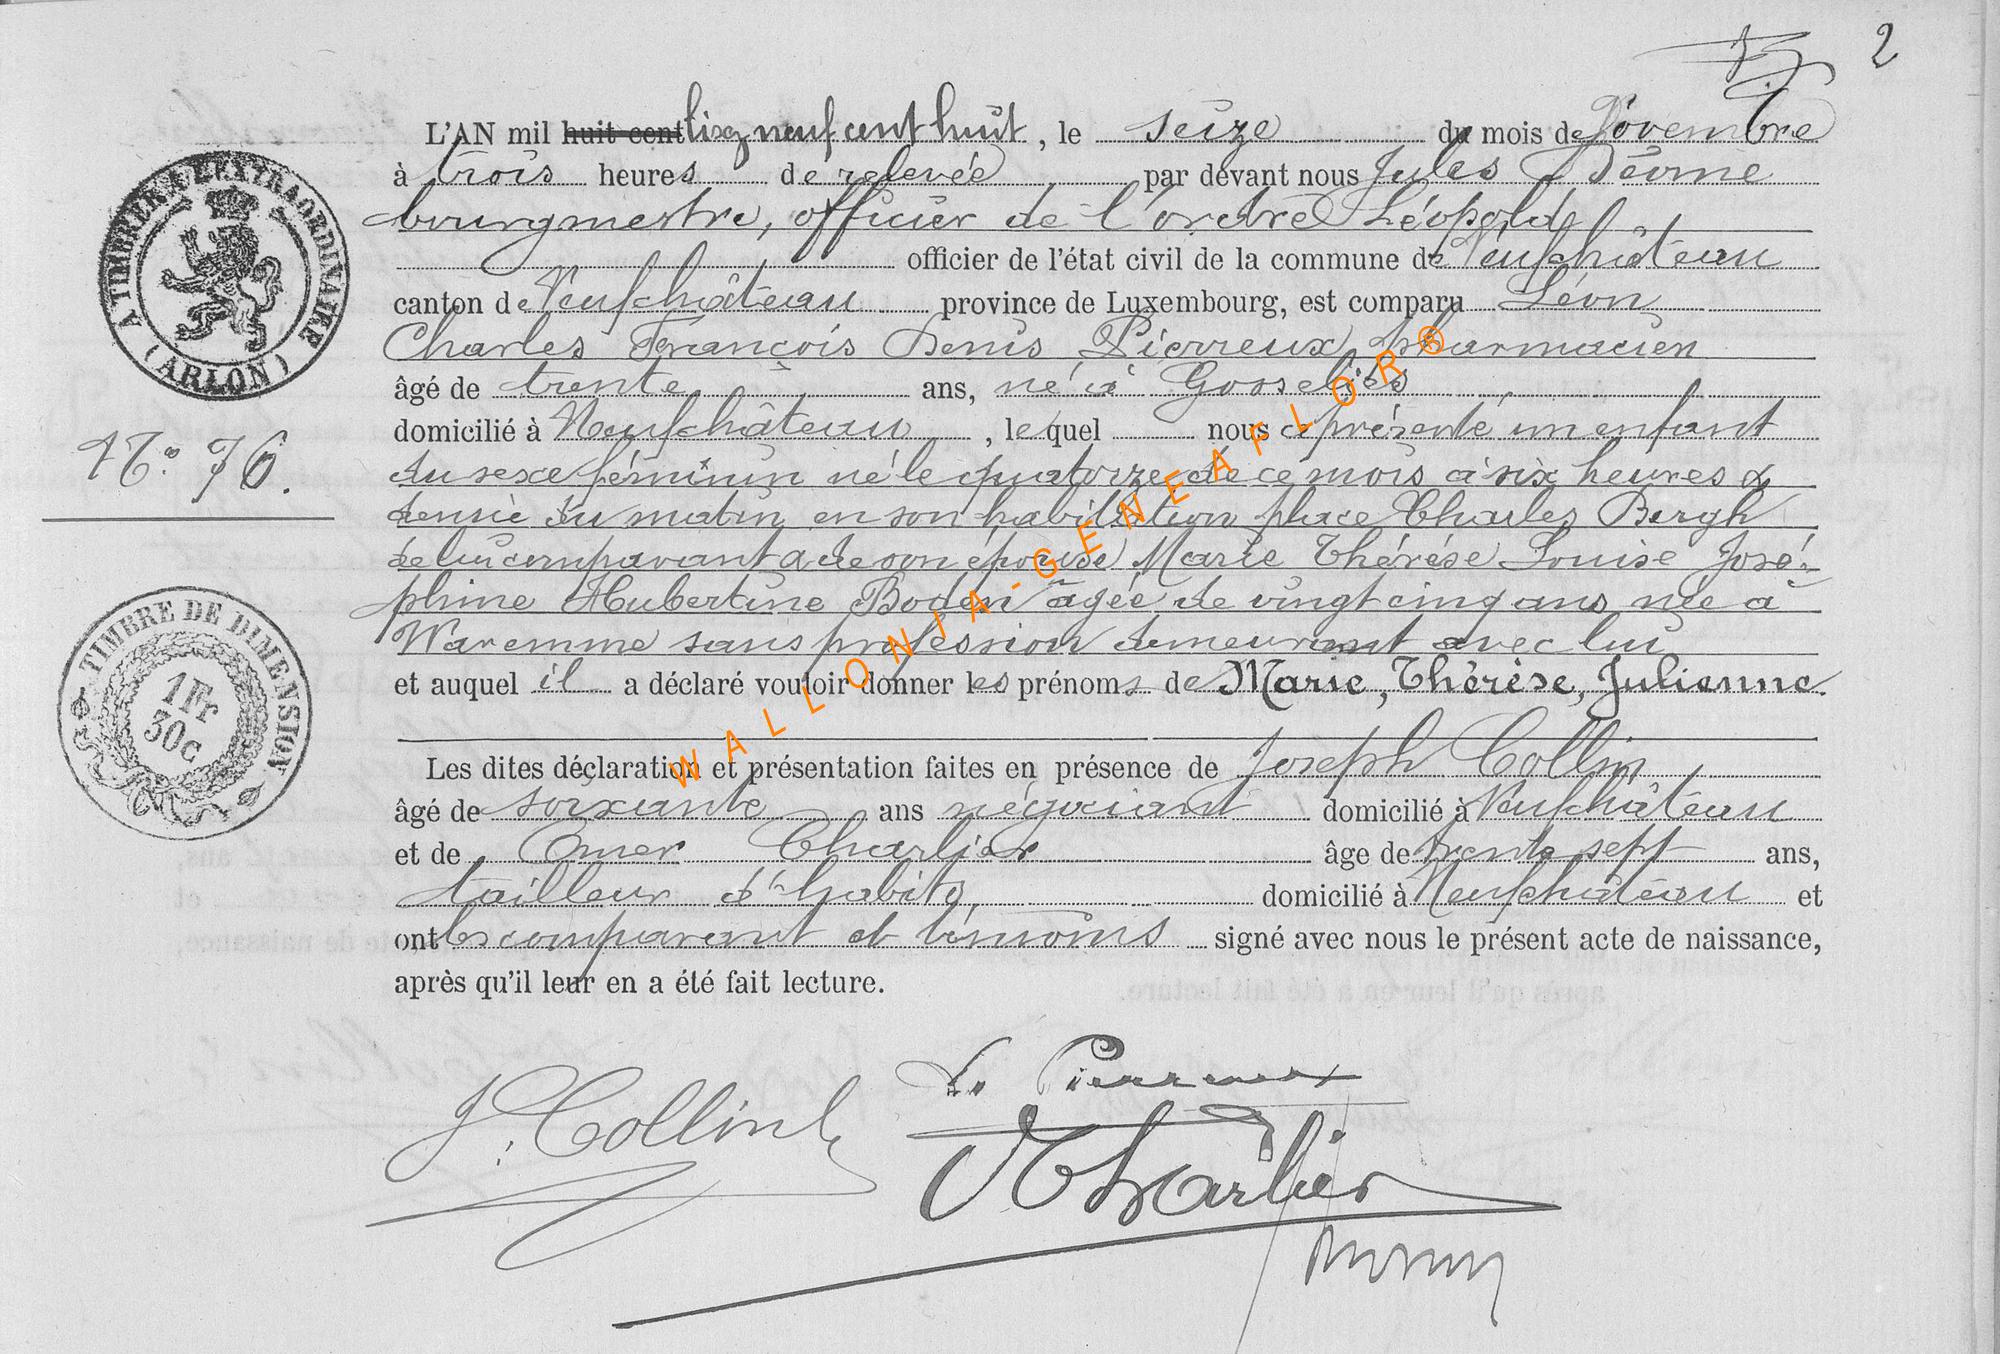 2
L'AN mil huit cent neuf cent huit, le seize du mois de Novembre
à trois heures de relevée par devant nous Jules
bourgmestre, officier de l'ordre Léopold
officier de l'état civil de la commune de Neufchâteau
canton de Neufchâteau province de Luxembourg, est comparu Léon
Charles François Denis Pierreux pharmacien
âgé de trente ans, né à Gosselies
domicilié à Neufchâteau, lequel nous a présenté un enfant
du sexe féminin né le quatorze de ce mois à six heures &
demie du matin en son habitation place Charles Bergh
de lui comparant & de son épouse Marie Thérèse Louise José-
phine Hubertine Boden âgée de vingt cinq ans née à
Waremme sans profession demeurant avec lui
et auquel il a déclaré vouloir donner les prénoms de Marie, Thérèse, Julienne.
Les dites déclaration et présentation faites en présence de Joseph Collin
âgé de soixante ans négociant domicilié à Neufchâteau
et de Omer Charlier âge de trente sept ans,
tailleur d'habits, domicilié à Neufchâteau et
ont les comparant et témoins signé avec nous le présent acte de naissance,
après qu'il leur en a été fait lecture.
A TIMBRER A L'EXTRAORDINAIRE
(ARLON)
N° 76.
TIMBRE DE DIMENSION
1 Fr
30c
WALLONIA-GENEAFLOR®
L. Pierreux
J. Collin
O Charlier